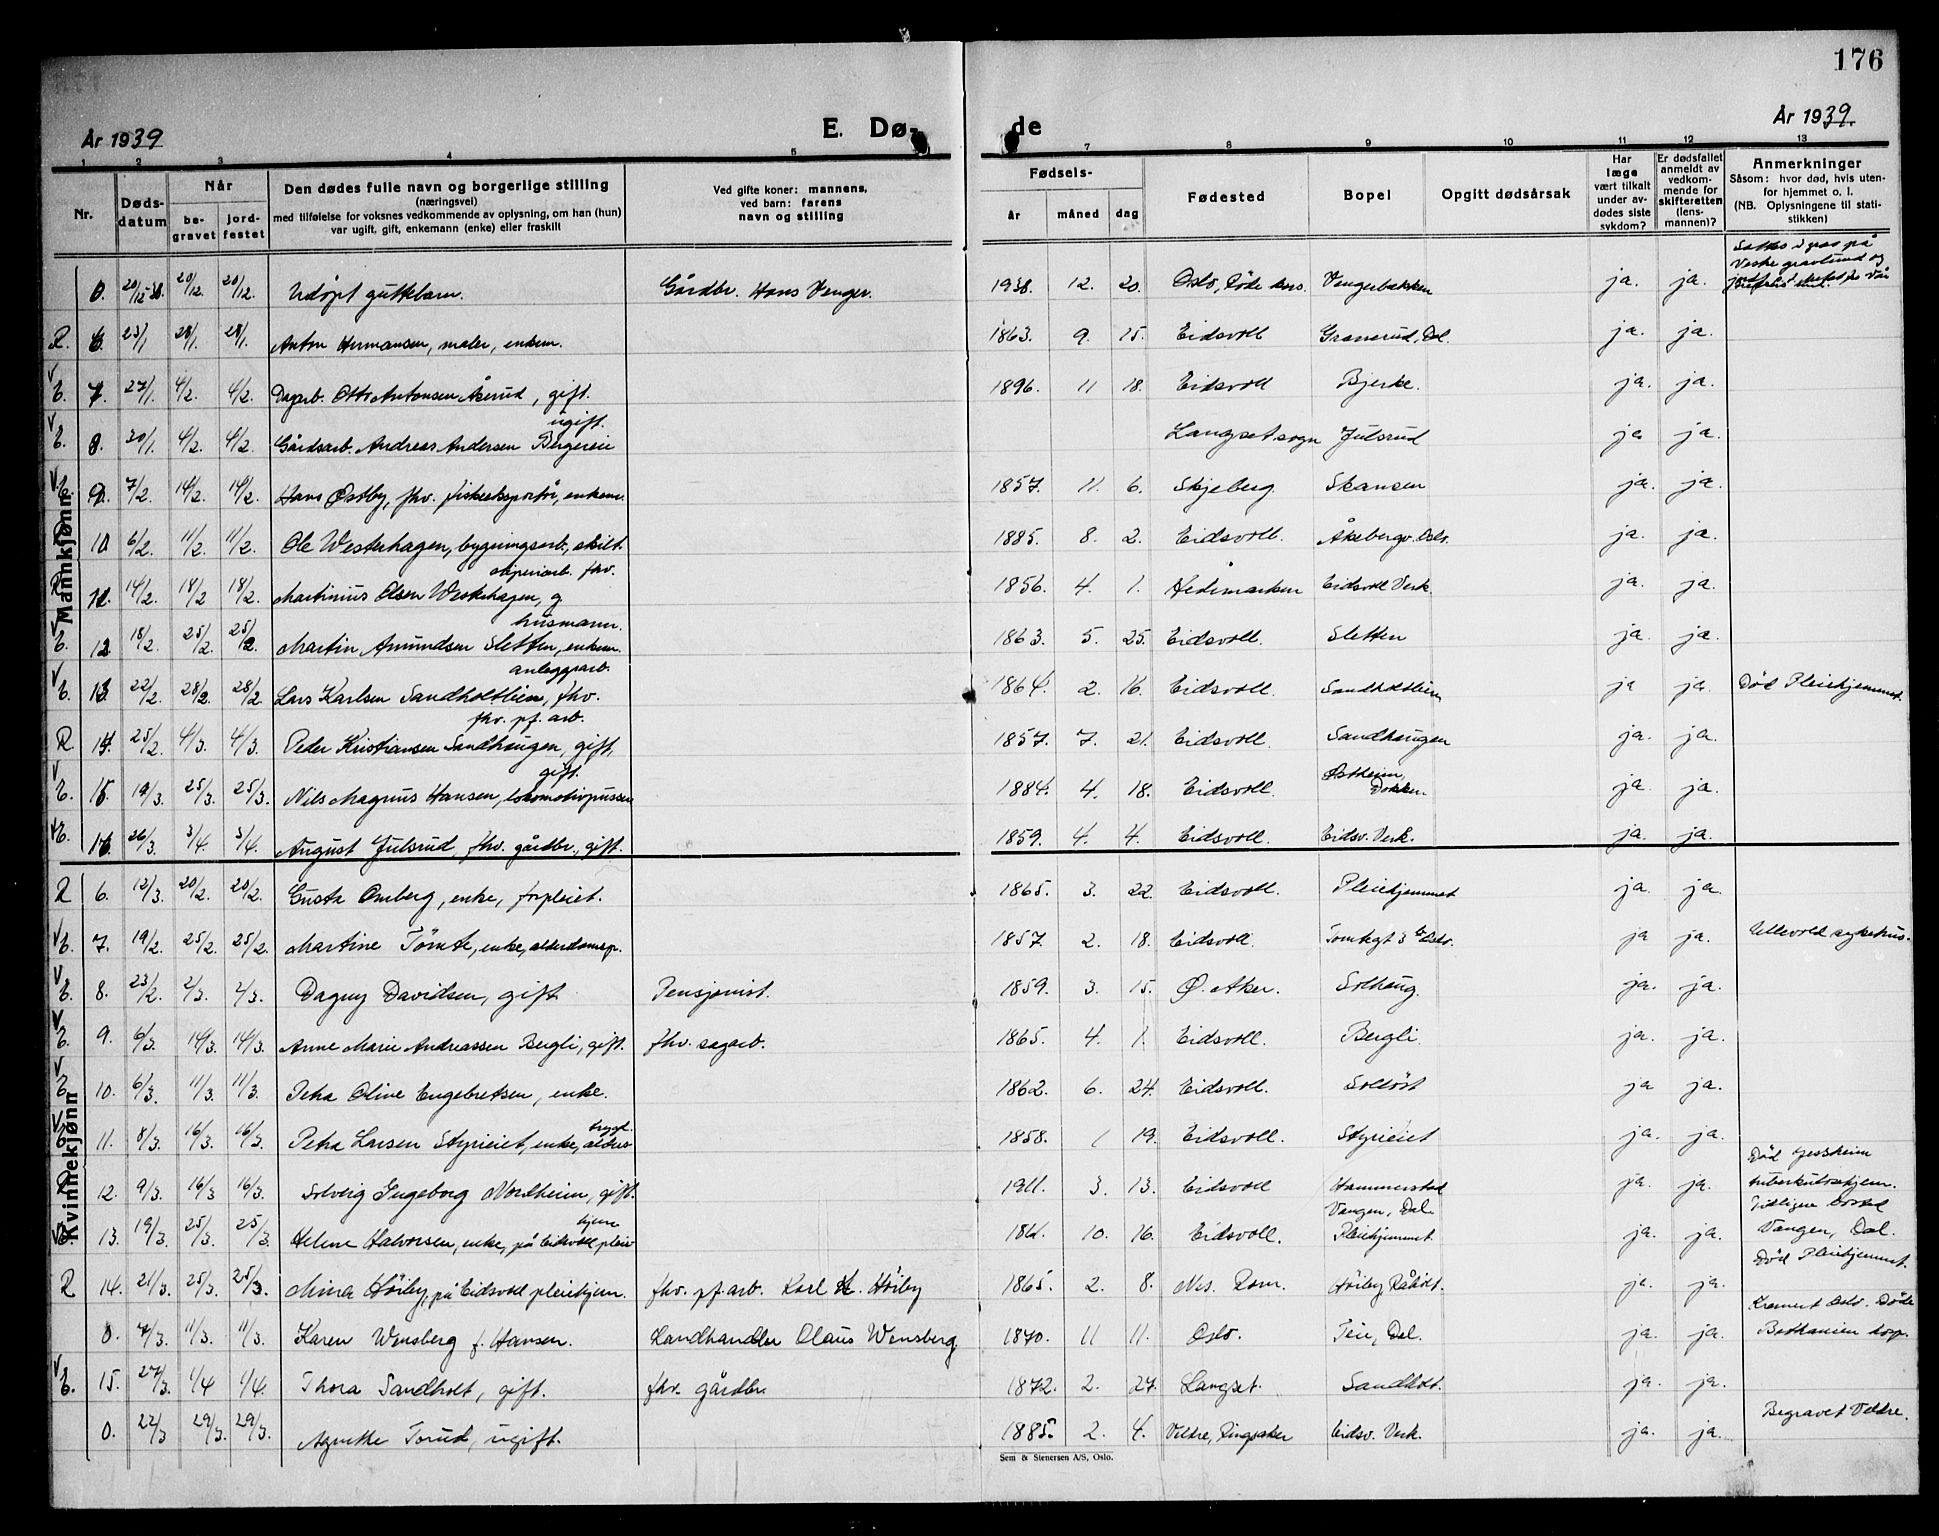 176
År 1939
E. Dø-
de
År 1939.
1 2 3 4 5 7 8 9 10 11 12 13
Nr.
Døds-
datum
Når
be-
gravet
jord-
festet
Den dødes fulle navn og borgerlige stilling
(næringsvei)
med tilføielse for voksnes vedkommende av oplysning, om han (hun)
var ugift, gift, enkemann (enke) eller fraskilt
Ved gifte koner: mannens,
ved barn: farens
navn og stilling
Fødsels-
år måned dag
Fødested
Bopel
Opgitt dødsårsak
Har
læge
vært tilkalt
under av-
dødes siste
sykdom?
Er dødsfallet
anmeldt av
vedkom-
mende for
skifteretten
(lens-
mannen)?
Anmerkninger
Såsom: hvor død, hvis uten-
for hjemmet o. l.
(NB. Oplysningene til stati-
stikken)
Mannkjønn
0. 20/12-38. 20/12. 20/12. Udøpt guttebarn. Gårdbr. Hans Venger. 1938. 12. 20. Oslo, Røde kors. Vengerbakken ja. ja.
R. 6. 23/1 28/1. 28/1. Anton Hermansen, maler, enkem. 1863. 9. 15. Eidsvoll Granerud, Dal. ja. ja.
E. 7. 27/1. 4/2. 4/2. Dagarb. Otto Antonsen Åsrud, gift. 1896. 11 18. Eidsvoll Bjerke. ja. ja.
ugift.
E. 8. 30/1. 4/2. 4/2. Gårdsarb. Andreas Andersen Bergereie Langset sogn Julsrud ja ja.
E. 9. 7/2. 14/2. 14/2. Hans Østby, fhv. fiskeeksportør, enkem. 1857. 11. 6. Skjeberg. Skansen ja. ja.
10 6/2. 11/2. 11/2. Ole Westerhagen, bygningsarb., skilt. 1885. 8. 2. Eidsvoll. Åkebergv. Oslo. ja. ja.
fhv.
R 11. 14/2. 18/2 18/2. Martinius Olsen Westerhagen, g 1856. 4. 1. Hedemarken Eidsvoll Verk. ja. ja.
husmann.
E. 12 18/2. 25/2. 25/2. Martin Amundsen Sletten, enkem. 1863. 5. 25. Eidsvoll. Sletten ja. ja.
anleggsarb.
E. 13 22/2. 28/2. 28/2. Lars Karlsen Sandholtlien, fhv. 1864. 2. 16. Eidsvoll. Sandholtlien ja ja. Død Pleiehjemmet.
fhv. pf. arb.
R 14. 25/2. 4/3. 4/3. Peder Kristiansen Sandhaugen, gift. 1857. 7. 21. Eidsvoll. Sandhaugen ja. ja.
gift.
Østheim,
E. 15. 19/3. 25/3. 25/3. Nils Magnus Hansen, lokomotivpusser 1884. 4. 18. Eidsvoll. Dokken. ja. ja.
E. 16. 26/3. 3/4. 3/4. August Julsrud, fhv. gårdbr., gift. 1859. 4. 4. Eidsvoll. Eidsv. Verk. ja. ja.
Kvinnekjønn
R 6. 12/3. 20/2. 20/2. Gusta Omberg, enke, forpleiet. 1865. 3. 22. Eidsvoll. Pleiehjemmet ja. ja.
E. 7. 19/2. 25/2. 25/2. Martine Tømte, enke, alderdomsp. 1857. 2. 18. Eidsvoll. Tomtegt 3 Oslo. ja ja. Ullevold sykehus.
E. 8. 23/2. 2/3. 2/3. Dagny Davidsen, gift. Pensjonist. 1859. 3. 15. Ø. Aker. Solhaug. ja. ja.
E. 9. 6/3. 14/3. 14/3. Anne Marie Andreassen Bergli, gift. fhv. sagarb. 1865. 4. 1. Eidsvoll. Bergli. ja. ja.
E. 10. 6/3. 11/3. 11/3. Petra Oline Engebretsen, enke. 1862. 6. 24. Eidsvoll. Soltöst ja ja.
trygd.
E. 11. 8/3. 16/3. 16/3. Petra Larsen Styrieiet, enke, alders 1858. 1 19. Eidsvoll. Styrieiet ja. ja.
Død Jessheim
R 12. 9/3. 16/3 16/3. Solveig Ingeborg Nordheim, gift. 1911. 3. 13. Eidsvoll Hammerstad ja. ja. tuberkulosehjem.
hjem
Vangen, Dal.
Tidligere bosted
E. 13. 19/3. 25/3. 25/3. Helene Halvorsen, enke, på Eidsvoll pleie 1861. 10. 16. Eidsvoll. Pleiehjemmet. ja. ja. Vangen, Dal.
Død Pleiehjemmet.
R 14. 21/3. 25/3. 25/3. Mina Høiby, på Eidsvoll pleiehjem. fhv. pf. arb. Karl H. Høiby 1865. 2. 8. Nes. Rom. Høiby, Råholt. ja. ja.
Kremert Oslo. Døde
0. 7/3. 11/3. 11/3. Karen Wensberg f. Hansen. Landhandler Olaus Wensberg. 1870. 11 11. Oslo. Teie, Dal. ja. ja. Bethanien hosp.
E. 15. 27/3. 1/4 1/4. Thora Sandholt, gift. fhv. gårdbr. 1872. 2. 27. Langset. Sandholt. ja. ja.
Begravet Veldre.
0. 22/3 29/3. 29/3. Agnethe Torud, ugift. 1885. 2. 4. Veldre, Ringsaker Eidsv. Verk. ja. ja.
Sem & Stenersen A/S, Oslo.